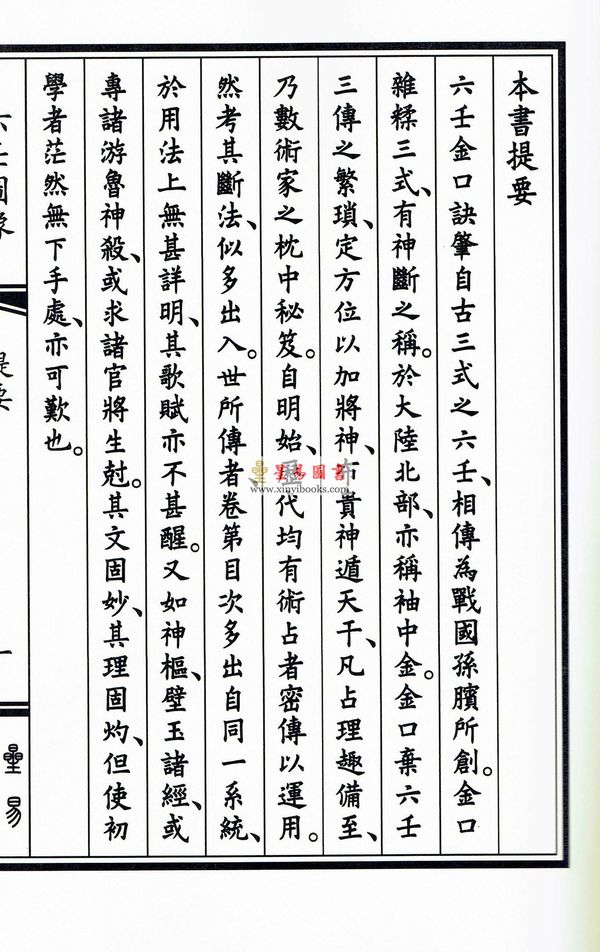 本書提要
六壬金口訣肇自古三式之六壬、相傳為戰國孫臏所創。金口
雜糅三式、有神斷之稱。於大陸北部、亦稱袖中金。金口棄六壬
三傳之繁瑣、定方位以加將神、布貴神遁天干、凡占理趣備至、
乃數術家之枕中秘笈。自明始、代均有術占者密傳以運用。
然考其斷法、似多出入世所傳者卷第目次多出自同一系統、
於用法上無甚詳明、其歌賦亦不甚醒。又如神樞、壁玉諸經、或
專諸游魯神殺、或求諸官將生尅。其文固妙、其理固灼、但使初
學者茫然無下手處、亦可歎也。
提要
一
星易
星易圖書
www.xinyibooks.com